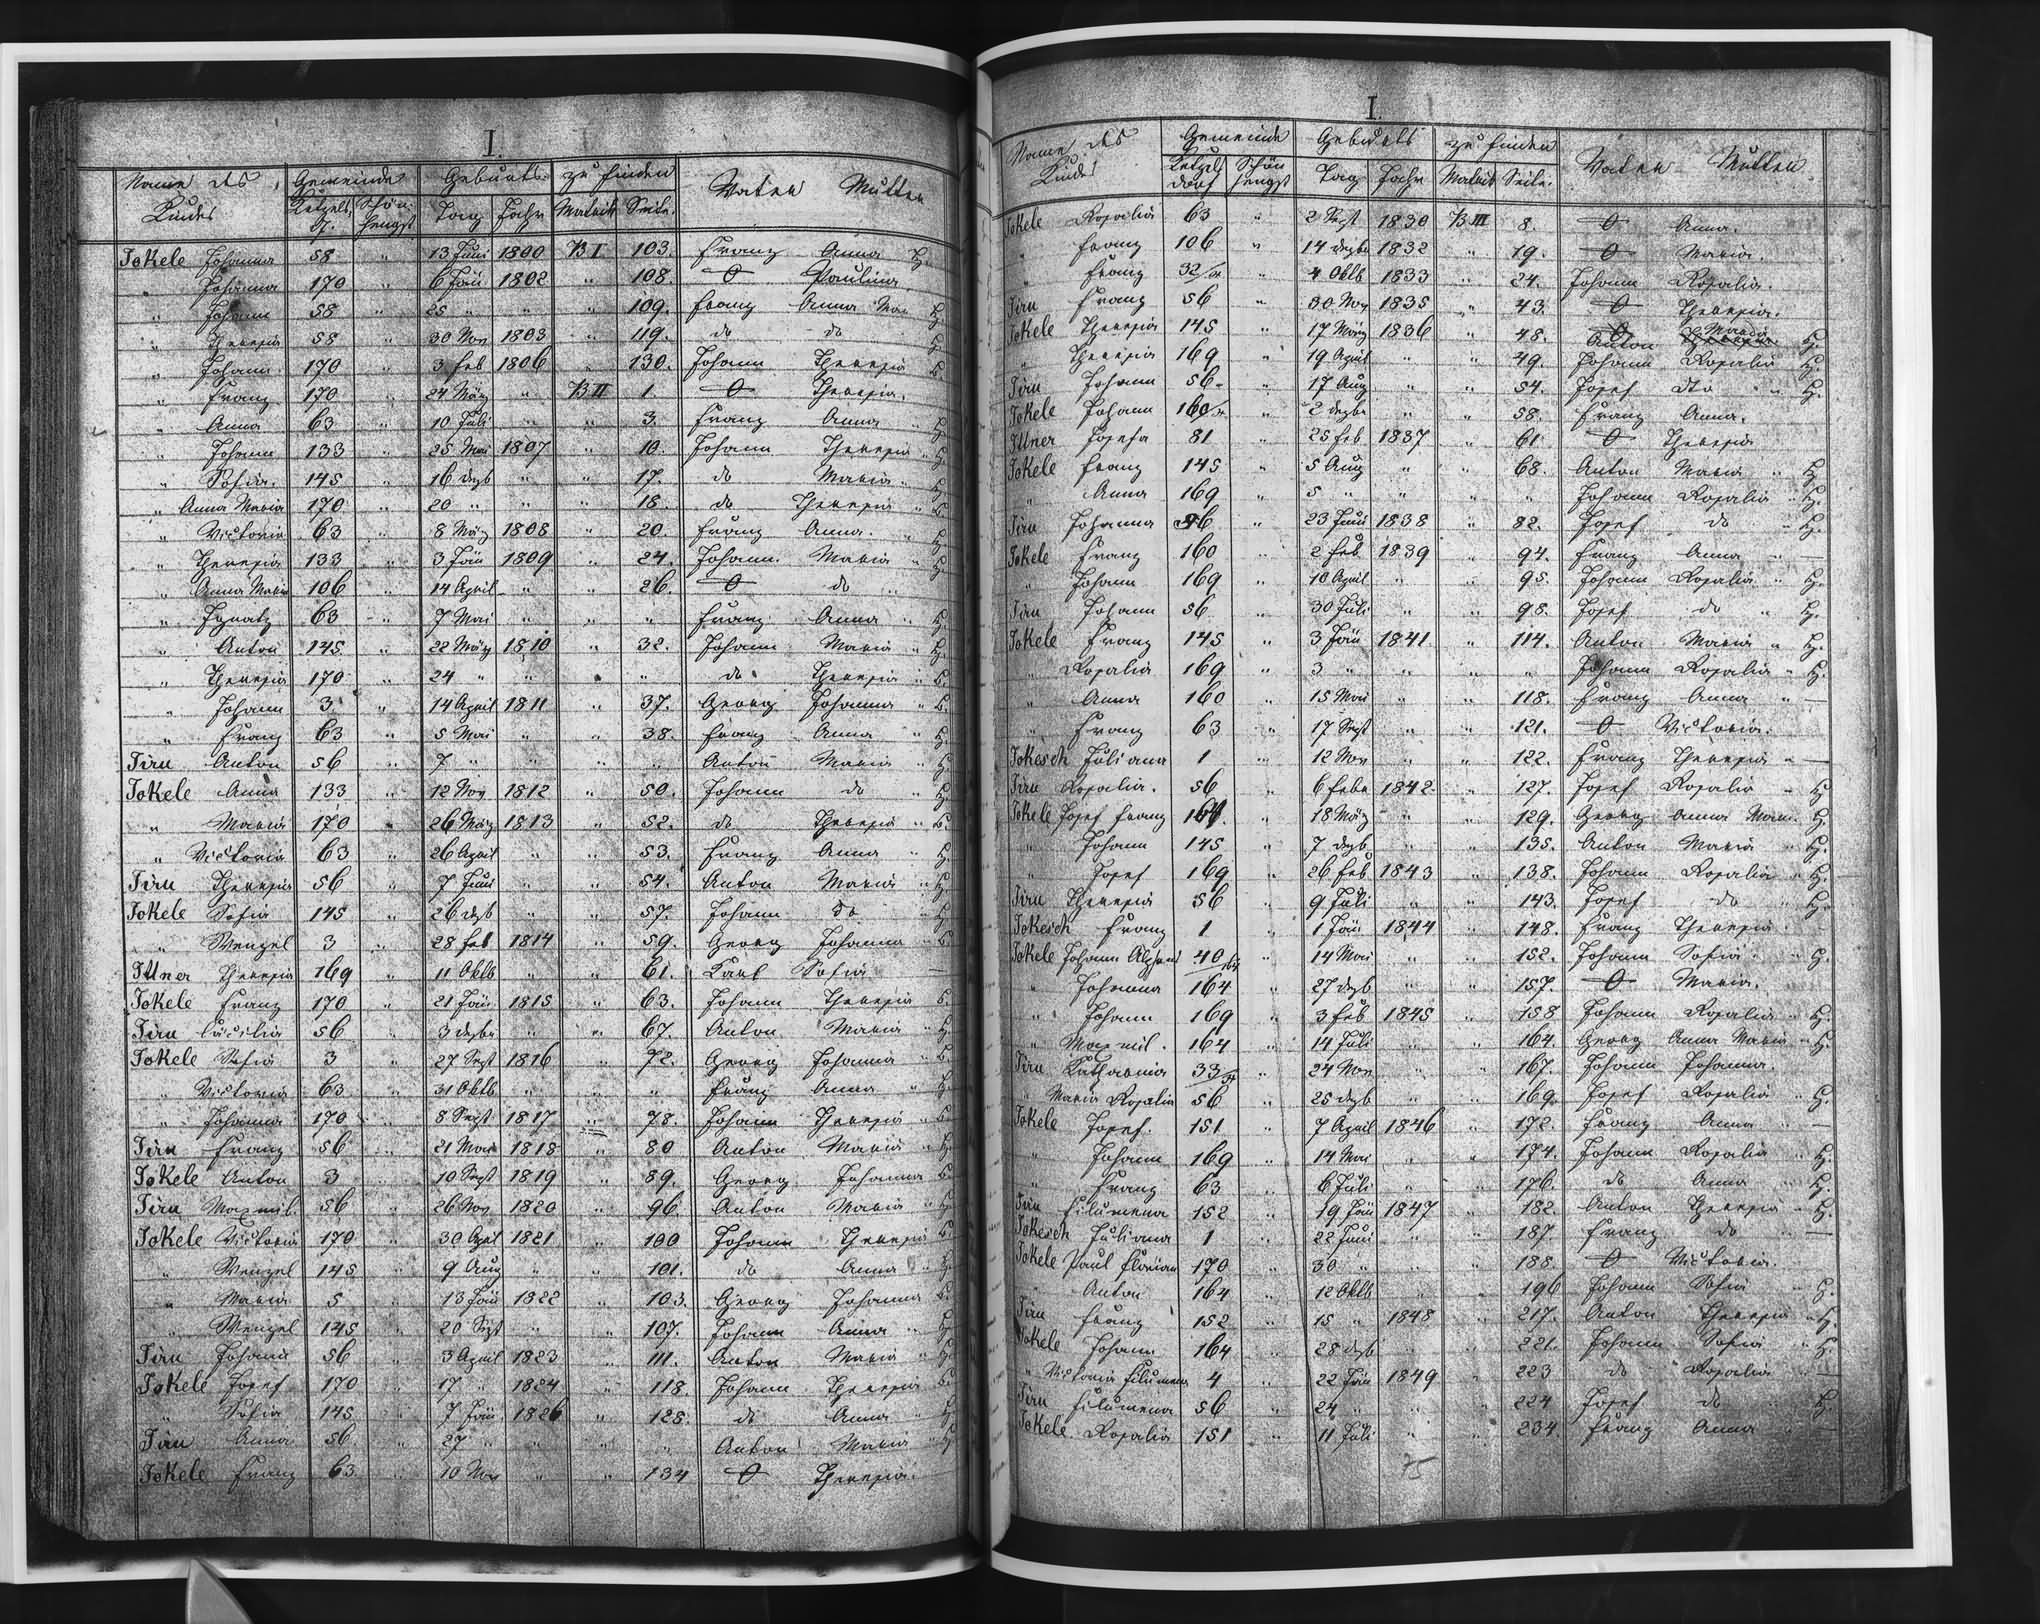 I.
Name des Gemeinde Geburts- zu finden Vater Mutter
Kindes Ketzelsd. Schönhengst Tag Jahr Matrik Seite.
Jokele Johanna 58 " 13 Juni 1800 B I 103. Franz Anna H.
" Johanna 170 " 6 Jäu 1802 " 108. O Paulina
" Johann 58 " 25 " " " 109. Franz Anna Mar H.
" Theresia 58 " 30 Nov 1803 " 119. do do H.
" Johann 170 " 3 Feb 1806 " 130. Johann Theresia
" Franz 170 " 24 März " B II 1. O Theresia.
" Anna 63 " 10 Juli " " 3. Franz Anna " H.
" Johann 133 " 25 Mai 1807 " 10. Johann Theresia " H.
" Sofia. 145 " 16 dezb " " 17. do Maria " H.
" Anna Maria 170 " 20 " " " 18. do Theresia "
" Victoria 63 " 8 März 1808 " 20. Franz Anna. " H.
" Theresia 133 " 3 Jäu 1809 " 24. Johann. Maria " H.
" Anna Maria 106 " 14 April " " 26. O do
" Ignatz 63 " 7 Mai " " " Franz Anna " H.
" Anton 145 " 22 März 1810 " 32. Johann Maria " H.
" Theresia 170 " 24 " " " " do Theresia "
" Johann 3 " 14 April 1811 " 37. Georg Johanna "
" Franz 63 " 5 Mai " " 38. Franz Anna " H.
Jiru Anton 56 " 7 " " " " Anton Maria " H.
Jokele Anna 133 " 12 Nov 1812 " 50. Johann do " H.
" Maria 170 " 26 März 1813 " 52. do Theresia "
" Victoria 63 " 26 April " " 53. Franz Anna " H.
Jiru Theresia 56 " 7 Juni " " 54. Anton Maria " H.
Jokele Sofia 145 " 26 dezb " " 57. Johann do " H.
" Wenzel 3 " 28 Feb 1814 " 59. Georg Johanna "
Ittner Theresia 169 " 11 Oktb " " 61. Karl Sofia —
Jokele Franz 170 " 21 Jäu 1815 " 63. Johann Theresia
Jiru Cäcilia 56 " 3 dezbr " " 67. Anton Maria " H.
Jokele Sofia 3 " 27 Sept 1816 " 72. Georg Johanna "
" Victoria 63 " 31 Oktb " " " Franz Anna " H.
" Johanna 170 " 8 Sept 1817 " 78. Johann Theresia "
Jiru Franz 56 " 21 Mai 1818 " 80 Anton Maria " H.
Jokele Anton 3 " 10 Sept 1819 " 89. Georg Johanna
Jiru Maxmil. 56 " 26 Nov 1820 " 96. Anton Maria " H.
Jokele Victoria 170 " 30 April 1821 " 100 Johann Theresia
" Wenzel 145 " 9 Aug " " 101. do Anna " H.
" Maria 5 " 13 Jäu 1822 " 103. Georg Johanna
" Wenzel 145 " 20 Sept " " 107. Johann Anna " H.
Jiru Johann 56 " 3 April 1823 " 111. Anton Maria " H.
Jokele Josef 170 " 17 " 1824 " 118. Johann Theresia
" Sofia 145 " 7 Jäu 1826 " 128. do Anna " H.
Jiru Anna 56 " 27 " " " " Anton Maria " H.
Jokele Franz 63 " 10 Nov " " 134 O Theresia.
I.
Name des Gemeinde Geburts zu finden Vater Mutter
Kindes Ketzelsdorf Schönhengst Tag Jahr Matrik Seite.
Jokele Rosalia 63 " 2 Sept 1830 B III 8. O Anna.
" Franz 106 " 14 dezbr 1832 " 19. O Maria.
" Franz 32/ " 4 Oktb 1833 " 24. Johann Rosalia.
Jiru Franz 56 " 30 Nov 1835 " 43. O Theresia.
Jokele Theresia 145 " 17 März 1836 " 48. Anton Maria H.
" Theresia 169 " 19 April " " 49. Johann Rosalia H.
Jiru Johann 56 " 17 Aug " " 54. Josef dto " H.
Jokele Johann 160/ " 2 dezbr " " 58. Franz Anna.
Ittner Josefa 81 " 25 Feb 1837 " 61 O Theresia
Jokele Franz 145 " 5 Aug " " 68. Anton Maria " H.
" Anna 169 " 5 " " " " Johann Rosalia " H.
Jiru Johanna 56 " 23 Juni 1838 " 82. Josef do " H.
Jokele Franz 160 " 2 Feb 1839 " 94. Franz Anna " —
" Johann 169 " 10 April " " 95. Johann Rosalia " H.
Jiru Johann 56 " 30 Juli " " 98. Josef do " H.
Jokele Franz 145 " 3 Jäu 1841 " 114. Anton Maria " H.
" Rosalia 169 " 3 " " " " Johann Rosalia " H.
" Anna 160 " 15 Mai " " 118. Franz Anna " —
" Franz 63 " 17 Sept " " 121. O Victoria.
Jokesch Juliana 1 " 12 Nov " " 122. Franz Theresia " —
Jiru Rosalia. 56 " 6 Febr 1842 " 127. Josef Rosalia " H.
Jokele Josef Franz 164 " 18 März " " 129. Georg Anna Mar. H.
" Johann 145 " 7 dezb " " 135. Anton Maria " H.
" Josef 169 " 26 Feb 1843 " 138. Johann Rosalia " H.
Jiru Theresia 56 " 9 Juli " " 143. Josef do " H.
Jokesch Franz 1 " 1 Jäu 1844 " 148. Franz Theresia
Jokele Johann Alfons 40/164 " 14 Mai " " 152. Johann Sofia " H.
" Johanna 164 " 27 dezb " " 157. O Maria.
" Johann 169 " 3 Feb 1845 " 158 Johann Rosalia " H.
" Maxmil. 164 " 14 Juli " " 164. Georg Anna Maria " H.
Jiru Katharina 33/ " 24 Nov " " 167. Johann Johanna.
" Maria Rosalia 56 " 25 dezb " " 169. Josef Rosalia " H.
Jokele Josef. 151 " 7 April 1846 " 172. Franz Anna " —
" Johann 169 " 14 Mai " " 174. Johann Rosalia " H.
" Franz 63 " 6 Juli " " 176. do Anna " H.
Jiru Filumena 152 " 19 Jäu 1847 " 182. Anton Theresia " H.
Jokesch Juliana 1 " 22 Juni " " 187. Franz do " —
Jokele Paul Florian 170 " 30 " " " 188. O Victoria.
" Anton 164 " 12 Oktb " " 196 Johann Sofia " H.
Jiru Franz 152 " 15 " 1848 " 217. Anton Theresia " H.
Jokele Johann 164 " 28 dezb " " 221. Johann Sofia " H.
" Victoria Filumena 4 " 22 Jäu 1849 " 223 do Rosalia —
Jiru Filumena 56 " 24 " " " 224 Josef do H.
Jokele Rosalia 151 " 11 Juli " " 234. Franz Anna
75